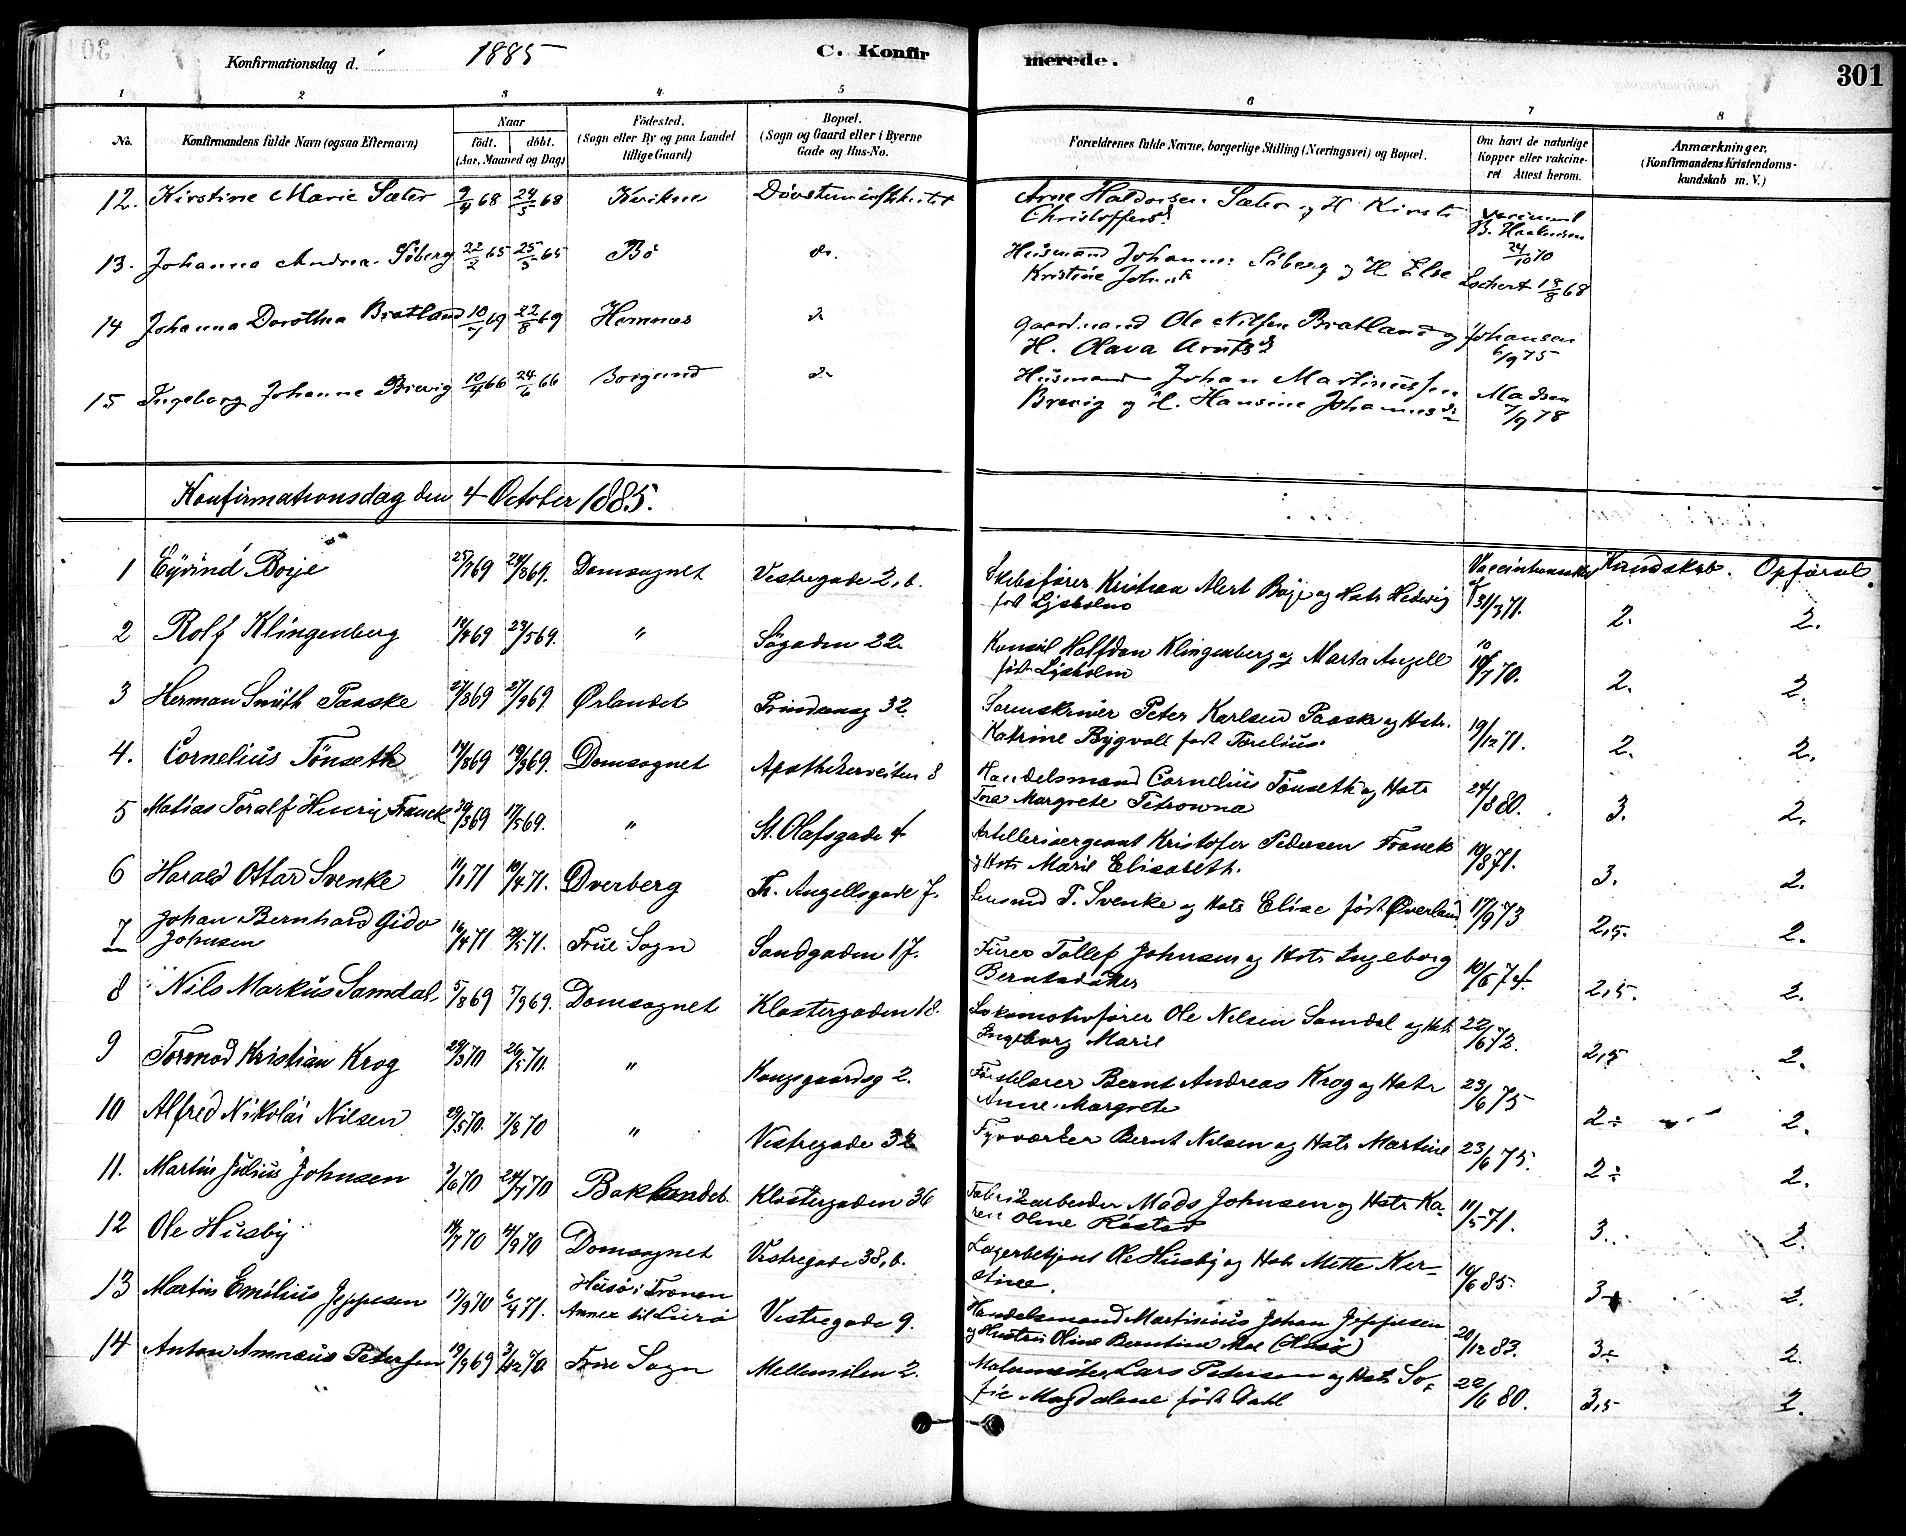 Konfirmationsdag d. 1885 C. Konfir merede. 301
1 2 3 4 5 6 7 8
No. Konfirmandens fulde Navn (ogsaa Efternavn) Naar født. døbt. (Aar, Maaned og Dag) Fødested. (Sogn eller By og paa Landet tillige Gaard) Bopæl. (Sogn og Gaard eller i Byerne Gade og Hus-No. Forældrenes fulde Navne, borgerlige Stilling (Næringsvei) og Bopæl. Om havt de naturlige Kopper eller vakcineret. Attest herom. Anmærkninger. (Konfirmandens Kristendomskundskab m. V.)
12. Kirstine Marie Sæter 9/4 68 24/5 68 Kvikne Arne Haldorsen Sæter og H. Kirst.
Christoffersd. B. Haakensen 24/10 70
13. Johanna Andrea Söberg 22/2 65 25/5 65 Bö do. Husmand Johannes Söberg og H. Else
Kristine Johns
14 Johanna Dorothea Bratland 10/7 69 22/8 69 Hemnes do Gaardmand Ole Nilsen Bratland og Johansen
H. Olava Arntsd 6/9 75
15 Ingeborg Johanne Brevig 10/4 66 24/6 66 Borgund do Husmand Johan Martinussen Madsen
Brevig og H. Hansine Johannesd 7/9 78
Konfirmationsdag den 4 October 1885.
1 Eyvind Boye 69 69. Domsognet Vestregade 2, b. Skibsfører Kristian Alert Boye og Hstr Hedevig 31/3 71. Kundskab. 2. Opførsel. 2.
født Lysholm
2 Rolf Klingenberg 69 23/5 69. " Søgaden 22. Konsul Halfdan Klingenberg og Marta Angell 70. 2. 2.
født Lysholm
3 Herman Smith Paaske 27/8 69 27/9 69 Ørlandet Prindsensg 32. Sorenskriver Peter Karlsen Paaske og Hstr. 19/12 71. 2. 2.
Katrine Bygvoll født
4. Cornelius Tönseth 69 69. Domsognet Apothekerveiten 8 Handelsmand Cornelius Tönseth og Hstr 24/8 80. 3. 2.
Tora Margrete Petrowna
5 Matias Toralf Henrix Franck 69 17/5 69. " St. Olafsgade 4 Artillerisergeant Kristofer Pedersen Franck 19/8 71. 3. 2.
og Hstr Marie Elisabeth.
6 Harald Ottar Svenke 11/1 71 10/4 71. Dverberg Th. Angellsgade 7. T. Svenke og Hstr Elise født Øverland 17/9 73 2,5. 2.
7 Johan Bernhard Gido
Johnsen 16/4 71 71. Frue Sogn Sandgaden 17. Fürer Tollef Johnsen og Hstr Ingeborg 10/6 74. 2,5. 2.
Berntsdatter
8 Nils Markus Samdal 5/8 69 5/9 69. Domsognet Klostergaden 18. Lokomotivfører Ole Nilsen Samdal og Hstr 22/6 72. 2,5 2.
Ingeborg Marie
9 Tormod Kristian Krog 29/3 70 26/5 70. " Kongsgaardsg 2. Bernt Andreas Krog og Hstr 23/6 75 2÷ 2.
Anne Margrete
10 Alfred Nikolai Nilsen 29/5 70. 7/8 70 " Vestregade 32 Fyrværker Bernt Nilsen og Hstr Martine 23/6 75. 2÷ 2.
11. Martin Julius Johnsen 3/6 70 24/7 70 Baklandet Klostergaden 36 Fabrikarbeider Mads Johnsen og Hstr Ka- 11/5 71. 3. 2.
ren Oline Røstad
12 Ole Husby 70 70 Domsognet Vestregade 38, b. Lagerbetjent Ole Husby og Hstr Mette Ker- 16/6 85. 3 2.
stine.
13 Martin Emilius Jeppesen 17/9 70 6/4 71. Husö i Trænen
Annex til Lurö Vestregade 9. Handelsmand Martinius Johan Jeppesen 20/12 83. 3÷ 2.
og Hustru Oline Berntine Moe (Husø)
14 Anton Amnæus Petersen 19/9 69 70 Frue Sogn Mellemilen 2. Lars Petersen og Hstr So- 22/6 80. 3,5 2.
fie Magdalene født Dahl